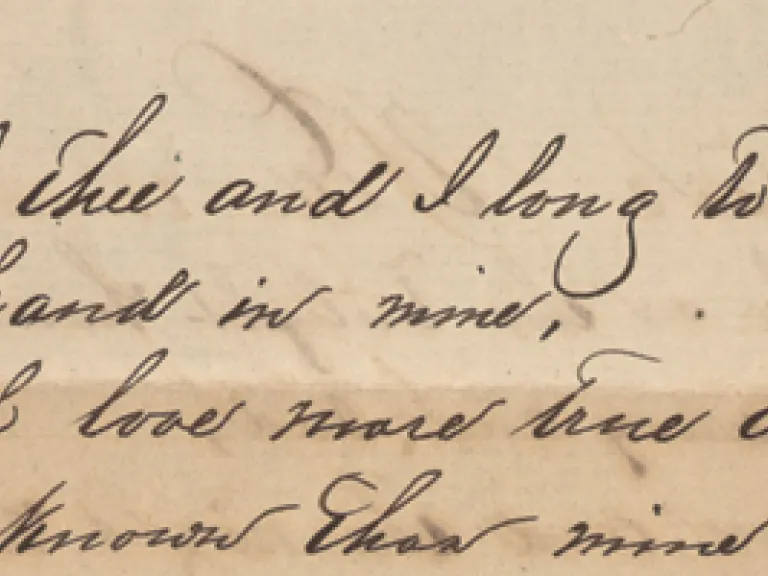 thee and I long to
hand in mine,
love more true
known than mine